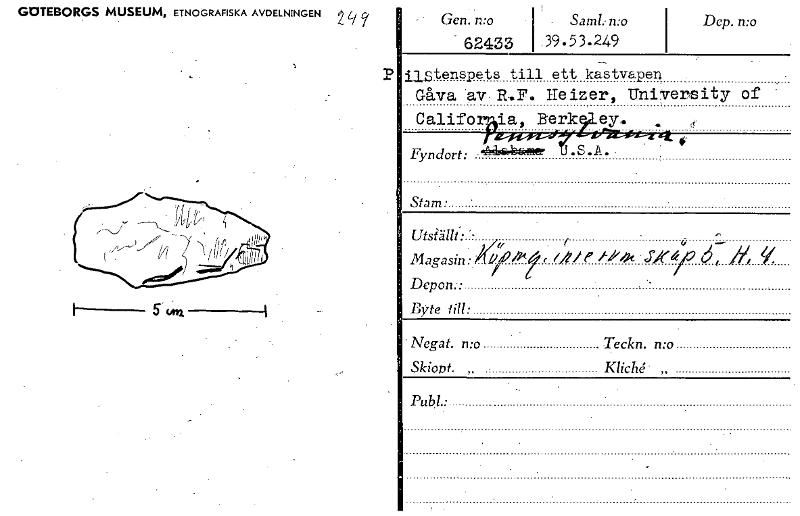 GÖTEBORGS MUSEUM, ETNOGRAFISKA AVDELNINGEN 249
Gen. n:o Saml. n:o Dep. n:o
62433 39.53.249
Pilstenspets till ett kastvapen
Gåva av R.F. Heizer, University of
California, Berkeley.
Pennsylvania.
Fyndort: Alabama U.S.A.
Stam:
Utställt:
Magasin: skåp 5. H. 4.
Depon.:
Byte till:
Negat. n:o Teckn. n:o
Skiopt. „ Kliché „
Publ.:
5 cm